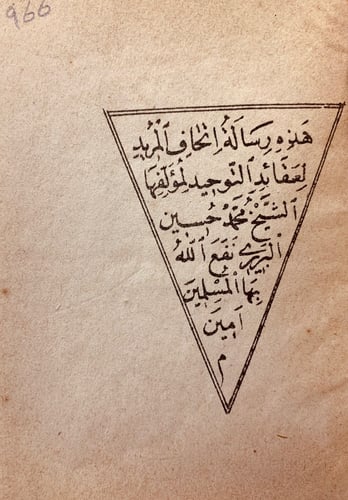 966
هَذِهِ رِسَالَةُ اِتْحَافِ الْمُرِيدِ
لِعَقَائِدِ التَّوْحِيدِ لِمُؤَلِّفِهَا
الشَّيْخْ مُحَمَّدْ حُسَيِن
نَفَعَ اللّٰهُ
بِهَا الْمُسْلِمِينَ
اٰمِينَ
م